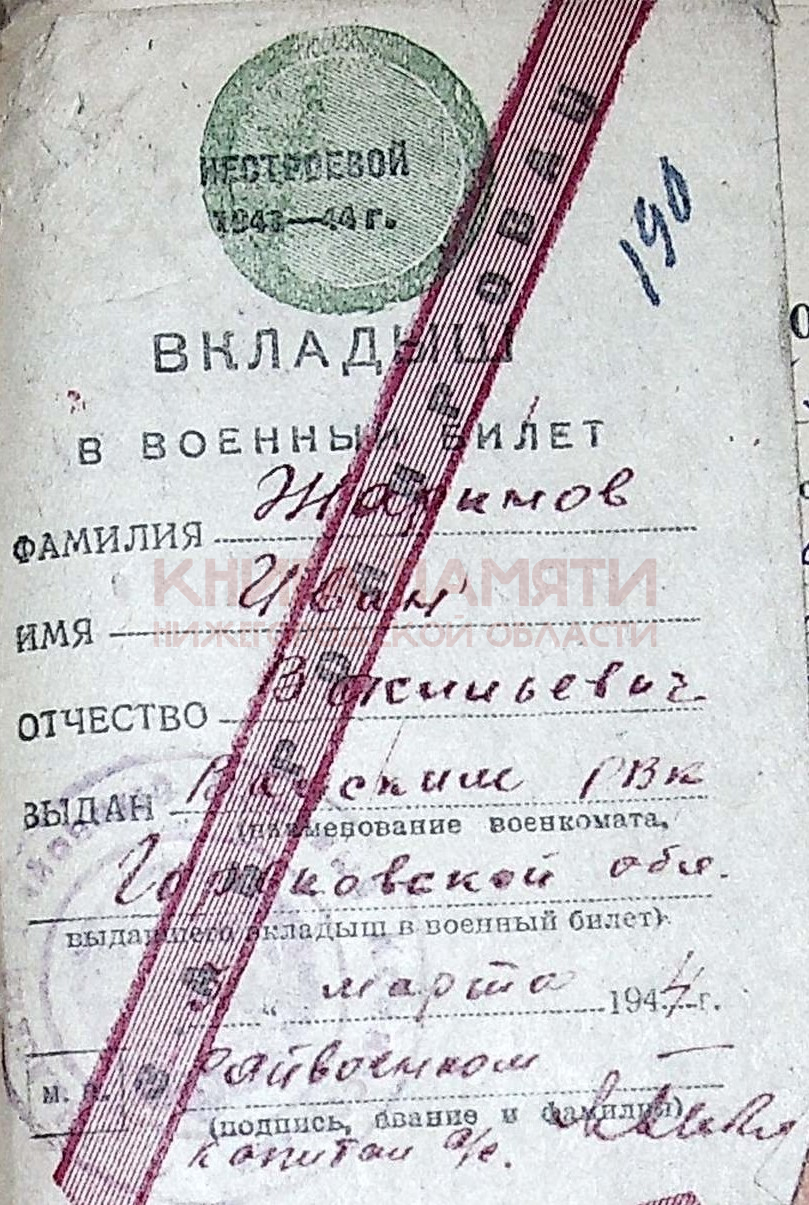 НЕСТРОЕВОЙ
1943—44 г.
190
ВКЛАДЫШ
В ВОЕННЫЙ БИЛЕТ
ФАМИЛИЯ Жаримов
ИМЯ Иван
ОТЧЕСТВО Васильевич
ВЫДАН Вачским РВК
(наименование военкомата,
Горьковской обл.
выдавшего вкладыш в военный билет)
" марта 1944 г.
М. П. Райвоенком
(подпись, звание и фамилия)
капитан а/с.
КНИГА ПАМЯТИ
НИЖЕГОРОДСКОЙ ОБЛАСТИ